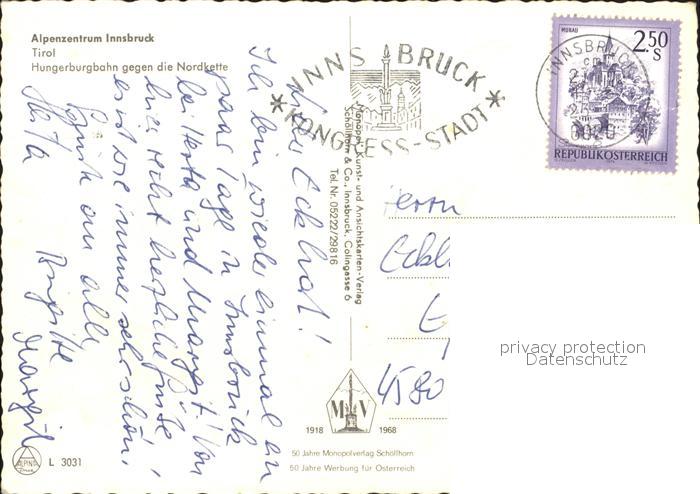 Alpenzentrum Innsbruck
Tirol
Hungerburgbahn gegen die Nordkette
Lieber Eckhat!
Ich bin wieder einmal ein
paar Tage in Innsbruck
bei Herta und Margit. Von
hier recht herzliche Grüße,
es ist wie immer sehr schön,
Gruß an alle
Brigitte
Herta
Margit
INNSBRUCK
* KONGRESS-STADT *
Monopol, Kunst- und Ansichtskarten-Verlag
Schöllhorn & Co., Innsbruck, Colingasse 6
Tel. Nr. 05222/29816
MURAU
2.50
S
REPUBLIK ÖSTERREICH
INNSBRUCK
6020
Herrn
4580
privacy protection
Datenschutz
M V
1918 1968
50 Jahre Monopolverlag Schöllhorn
50 Jahre Werbung für Österreich
ALPINA
L 3031